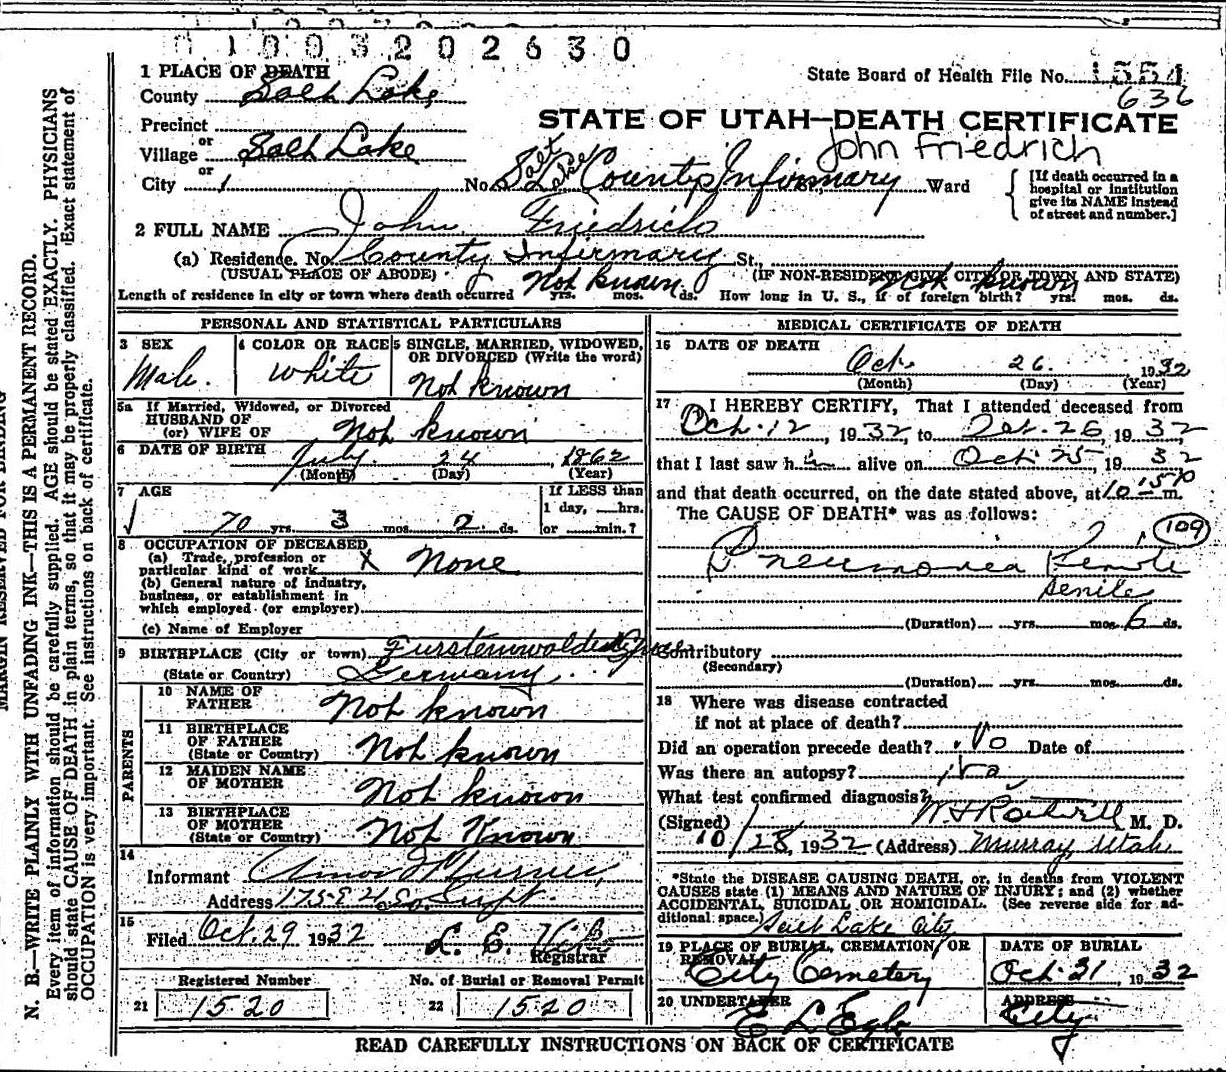 0 1 0 0 3 2 0 2 6 3 0
1 PLACE OF DEATH
State Board of Health File No. 1554
County Salt Lake
636
STATE OF UTAH—DEATH CERTIFICATE
Precinct
or
John Friedrich
Village Salt Lake
or
City 1 No. Salt Lake County Infirmary Ward
[If death occurred in a
hospital or institution
give its NAME instead
of street and number.]
2 FULL NAME John Friedrich
(a) Residence. No. County Infirmary St.,
(USUAL PLACE OF ABODE) (IF NON-RESIDENT GIVE CITY OR TOWN AND STATE)
Length of residence in city or town where death occurred Not known yrs. mos. ds. How long in U. S., if of foreign birth? Not known yrs. mos. ds.
PERSONAL AND STATISTICAL PARTICULARS
3 SEX Male.
4 COLOR OR RACE White
5 SINGLE, MARRIED, WIDOWED,
OR DIVORCED (Write the word)
Not known
5a If Married, Widowed, or Divorced
HUSBAND OF
(or) WIFE OF Not known
6 DATE OF BIRTH July 24, 1862
(Month) (Day) (Year)
7 AGE
70 yrs. 3 mos. 2 ds.
If LESS than
1 day, hrs.
or min.?
8 OCCUPATION OF DECEASED
(a) Trade, profession or
particular kind of work X None
(b) General nature of industry,
business, or establishment in
which employed (or employer)
(c) Name of Employer
9 BIRTHPLACE (City or town) Furstenwalde
(State or Country) Germany
PARENTS
10 NAME OF
FATHER Not known
11 BIRTHPLACE
OF FATHER
(State or Country) Not known
12 MAIDEN NAME
OF MOTHER Not known
13 BIRTHPLACE
OF MOTHER
(State or Country) Not Known
14
Informant
Address 175 E 4 So. Supt.
15
Filed Oct. 29 1932 L. E.
Registrar
Registered Number
21 1520
No. of Burial or Removal Permit
22 1520
MEDICAL CERTIFICATE OF DEATH
16 DATE OF DEATH
Oct. 26. 1932
(Month) (Day) (Year)
17 I HEREBY CERTIFY, That I attended deceased from
Oct. 12, 1932, to Oct. 26, 1932,
that I last saw h alive on Oct 25, 1932
and that death occurred, on the date stated above, at 10 15 P m.
The CAUSE OF DEATH* was as follows:
109
Pneumonia
Senile
(Duration) yrs. mos. 6 ds.
Contributory
(Secondary)
(Duration) yrs. mos. ds.
18 Where was disease contracted
if not at place of death?
Did an operation precede death? No Date of
Was there an autopsy? No
What test confirmed diagnosis?
(Signed) M. D.
10/28, 1932 (Address) Murray, Utah
*State the DISEASE CAUSING DEATH, or, in deaths from VIOLENT
CAUSES state (1) MEANS AND NATURE OF INJURY; and (2) whether
ACCIDENTAL, SUICIDAL OR HOMICIDAL. (See reverse side for ad-
ditional space.)
Salt Lake City
19 PLACE OF BURIAL, CREMATION, OR
REMOVAL
City Cemetery
DATE OF BURIAL
Oct. 31, 1932
20 UNDERTAKER
E L
ADDRESS
City
READ CAREFULLY INSTRUCTIONS ON BACK OF CERTIFICATE
MARGIN RESERVED FOR BINDING
N. B.—WRITE PLAINLY WITH UNFADING INK—THIS IS A PERMANENT RECORD.
Every item of information should be carefully supplied. AGE should be stated EXACTLY. PHYSICIANS
should state CAUSE OF DEATH in plain terms, so that it may be properly classified. Exact statement of
OCCUPATION is very important. See instructions on back of certificate.